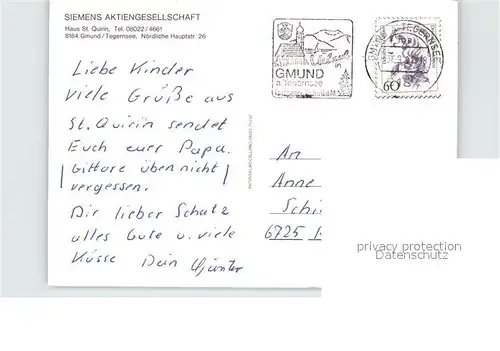 SIEMENS AKTIENGESELLSCHAFT
Haus St. Quirin, Tel. 08022/4661
8184 Gmund/Tegernsee, Nördliche Hauptstr. 26
in
GMUND
a. Tegernsee
GMUND a. TEGERNSEE
60
Liebe Kinder
Viele Grüße aus
St. Quirin sendet
Euch eurr Papa.
Gittare üben nicht
vergessen.
Dir lieber Schatz
alles Gute u. viele
Küsse Dein Günter
An
Anne
Schi
6725
privacy protection
Datenschutz